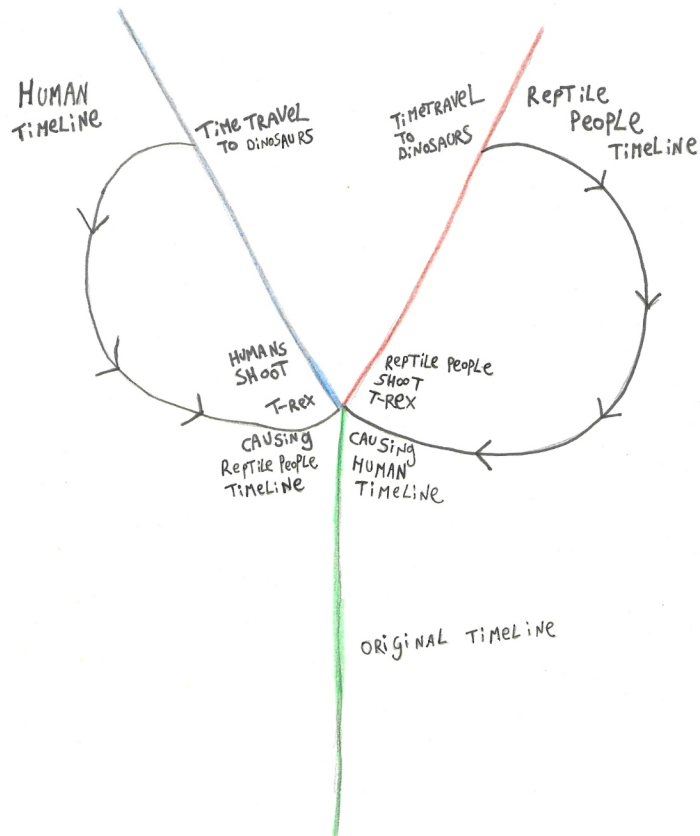 HUMAN
TIMELINE
TIME TRAVEL
TO DINOSAURS
TIMETRAVEL
TO
DINOSAURS
REPTILE
PEOPLE
TIMELINE
HUMANS
SHOOT
T-REX
CAUSING
REPTILE PEOPLE
TIMELINE
REPTILE PEOPLE
SHOOT
T-REX
CAUSING
HUMAN
TIMELINE
ORIGINAL TIMELINE